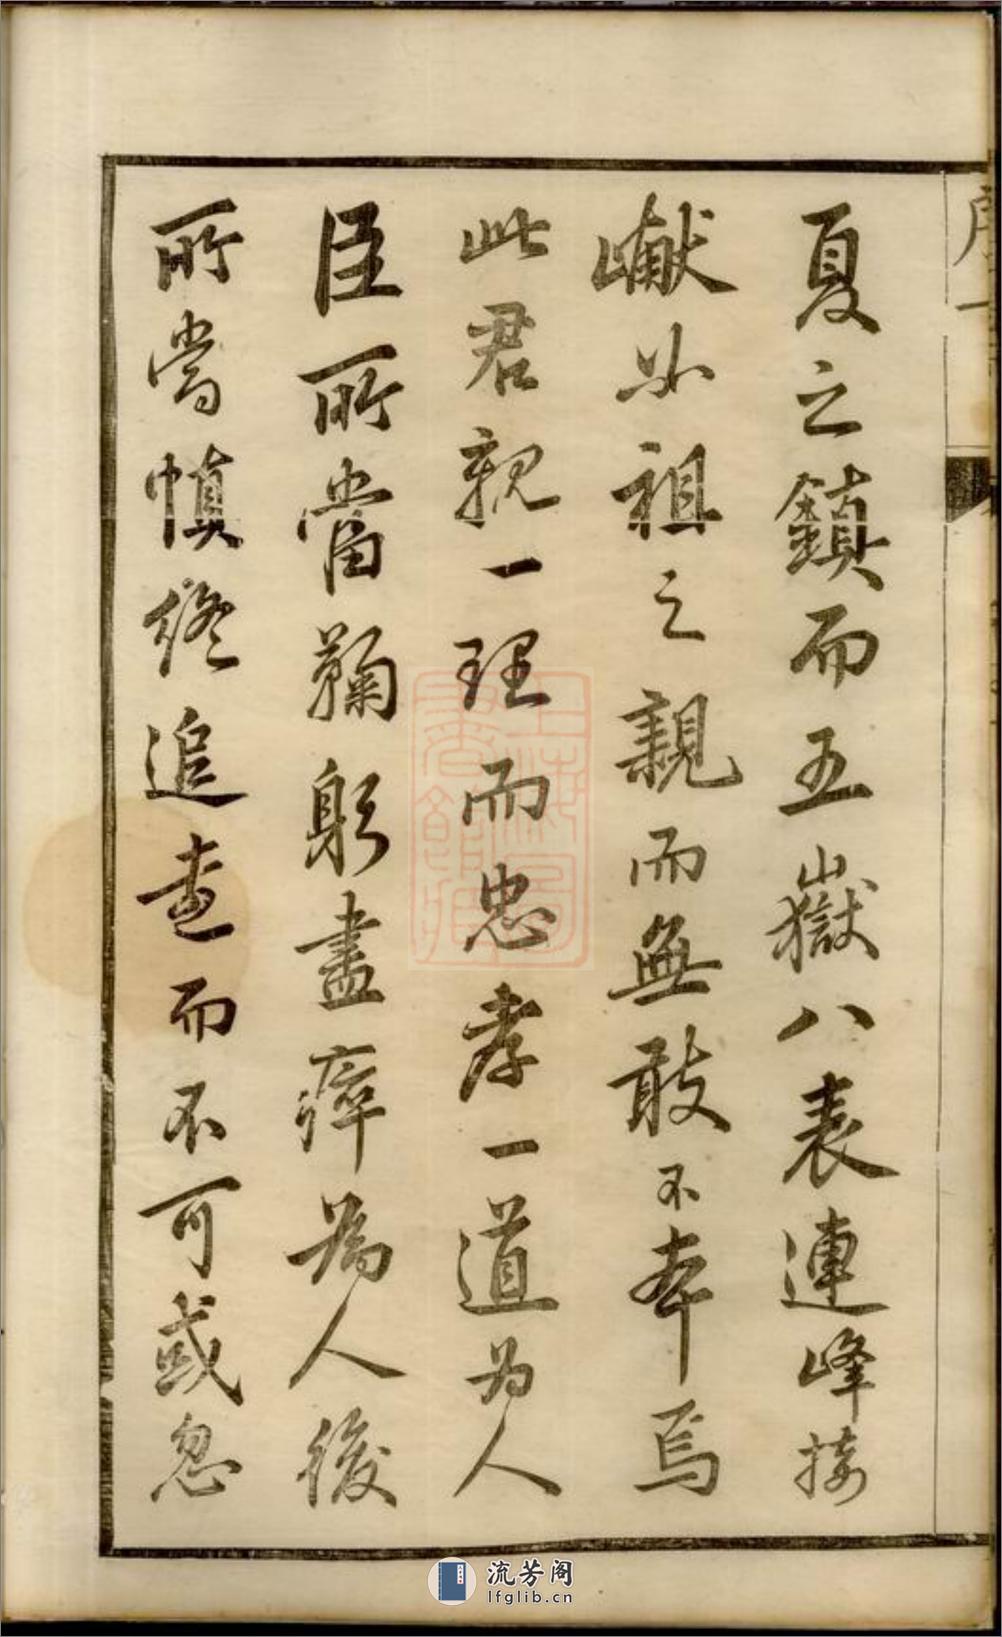 夏之鎮而五嶽八表連峰接
巘必祖之親而無敢不奉焉
此君親一理而忠孝一道為人
臣所當鞠躬盡瘁為人後
所當慎終追遠而不可或忽
上海圖
書館藏
流芳阁
lfglib.cn